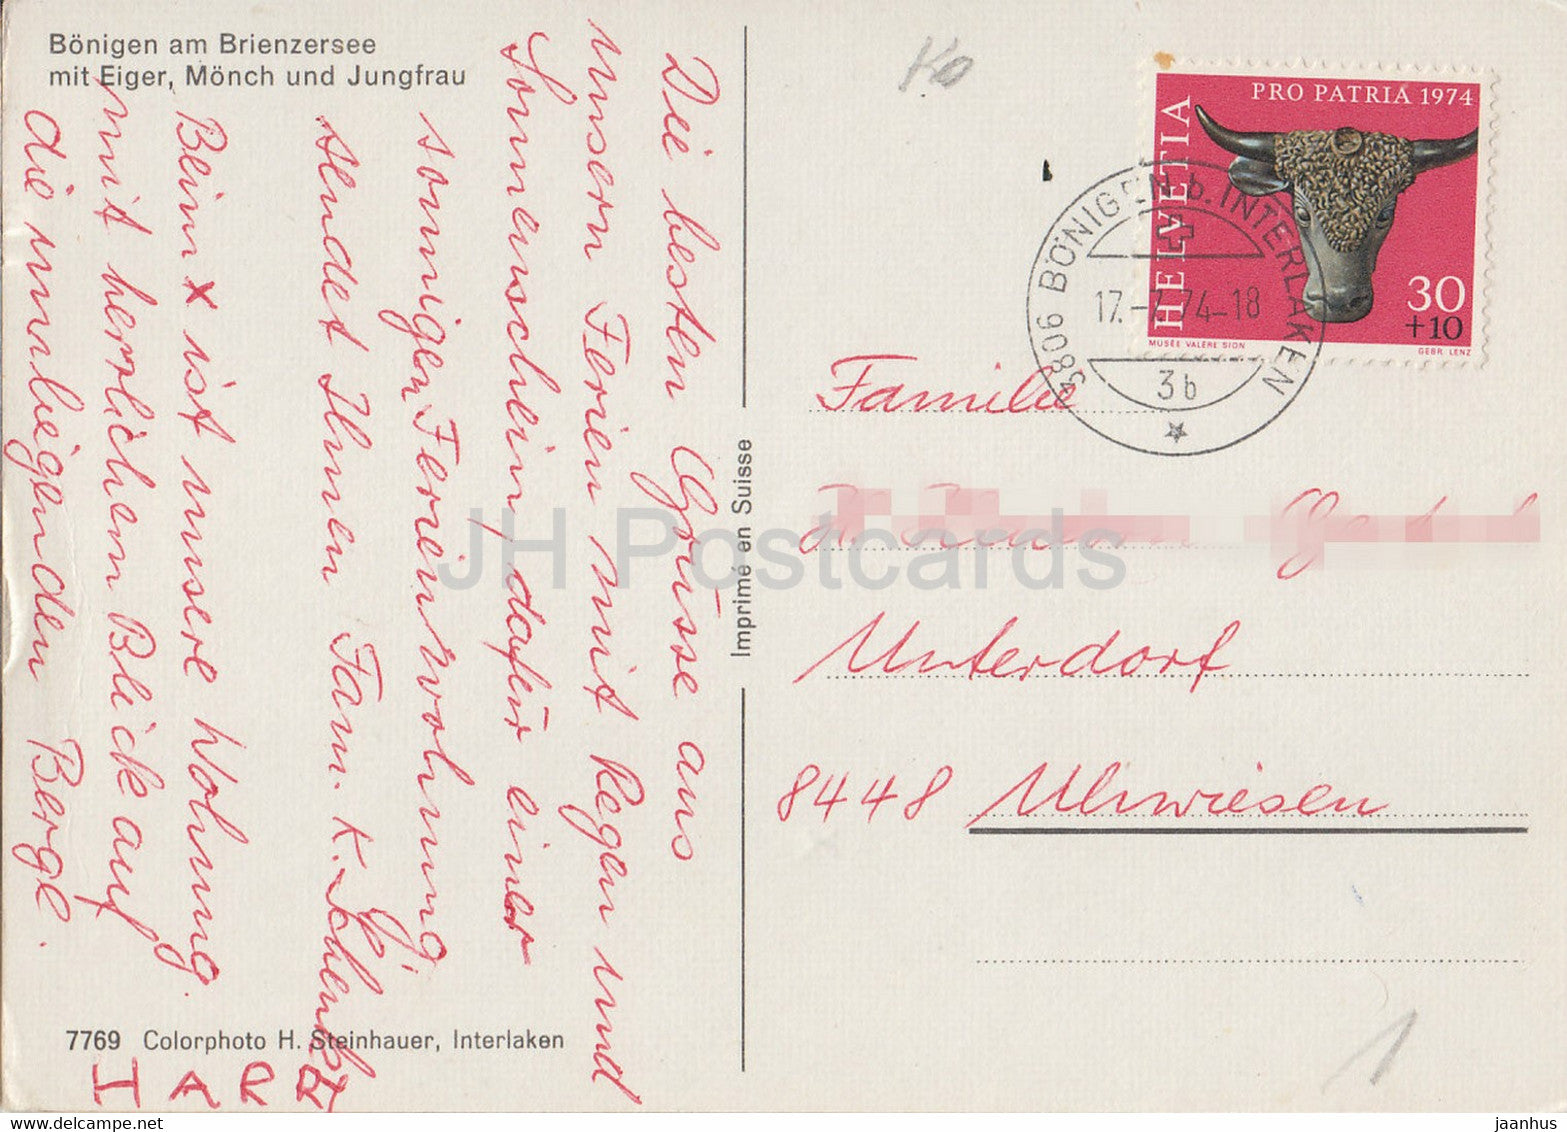 Bönigen am Brienzersee
mit Eiger, Mönch und Jungfrau
Die besten Grüsse aus
unsern Ferien mit Regen und
Sonnenschein, dafür einer
sonnigen Ferienwohnung,
sendet Ihnen Fam. K. Schenk
Beim x ist unsere Wohnung
mit herrlichem Blick auf
die umliegenden Berge.
7769 Colorphoto H. Steinhauer, Interlaken
Imprimé en Suisse
JH Postcards
Ko
HELVETIA
PRO PATRIA 1974
30
+10
MUSÉE VALÈRE SION
GEBR. LENZ
3806 BÖNIGEN b. INTERLAKEN
17.-7.74-18
3b
Familie
Unterdorf
8448 Uhwiesen
1
jaanhus